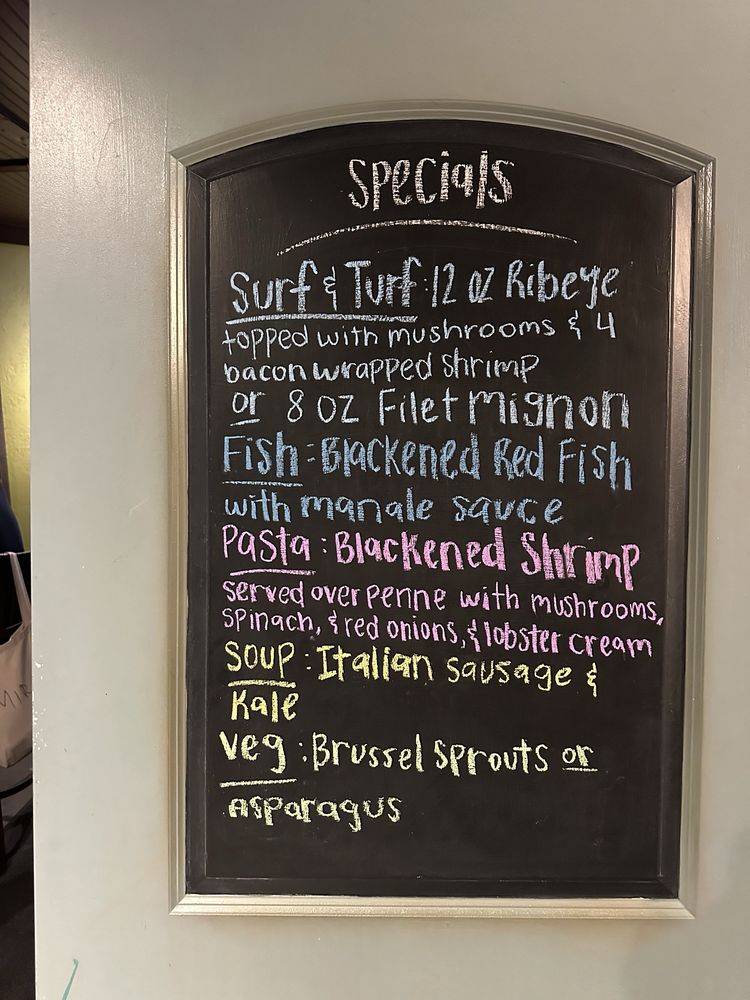 Specials
Surf & Turf: 12 oz Ribeye
topped with mushrooms & 4
bacon wrapped shrimp
or 8 oz Filet mignon
Fish: Blackened Red Fish
with manale sauce
Pasta: Blackened Shrimp
served over penne with mushrooms,
spinach, & red onions, & lobster cream
Soup: Italian sausage &
Kale
Veg: Brussel Sprouts or
Asparagus